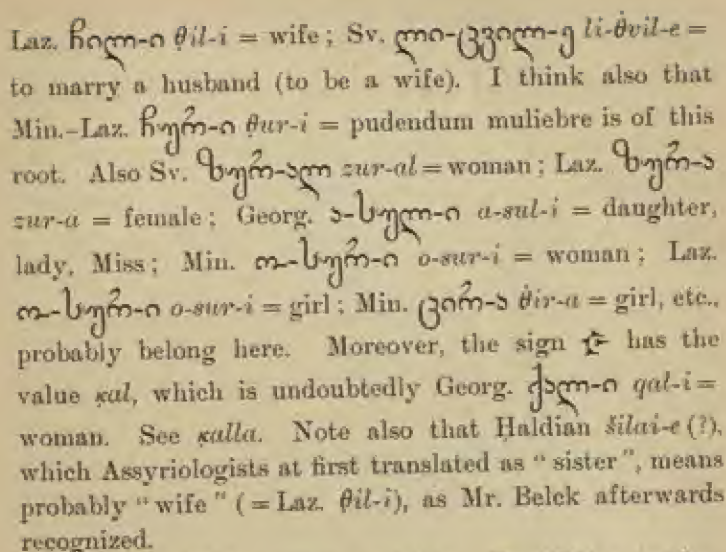 Laz. ჩილ-ი θil-i = wife; Sv. ლი-ცვილ-ე li-θ̇vil-e =
to marry a husband (to be a wife). I think also that
Min.-Laz. ჩურ-ი θur-i = pudendum muliebre is of this
root. Also Sv. ზურ-ალ zur-al = woman; Laz. ზურ-ა
zur-a = female; Georg. ა-სულ-ი a-sul-i = daughter,
lady, Miss; Min. ო-სურ-ი o-sur-i = woman; Laz.
ო-სურ-ი o-sur-i = girl; Min. ცირ-ა θ̇ir-a = girl, etc.,
probably belong here. Moreover, the sign has the
value ḳal, which is undoubtedly Georg. ქალ-ი qal-i =
woman. See ḳalla. Note also that Ḥaldian šilai-e (?),
which Assyriologists at first translated as "sister", means
probably "wife" (= Laz. θil-i), as Mr. Belck afterwards
recognized.